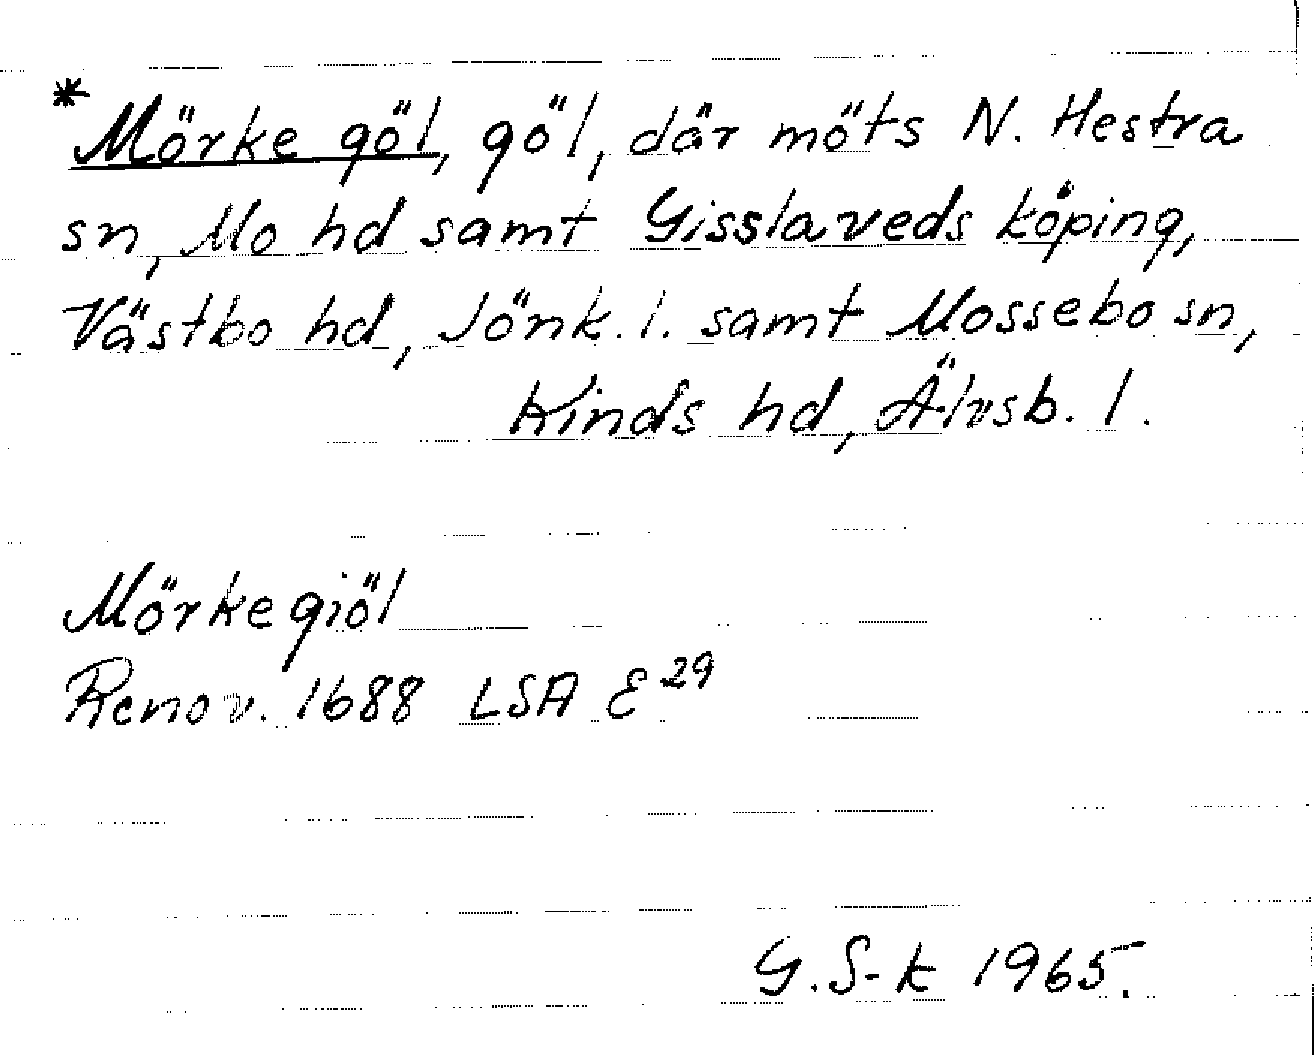 *Mörke göl, göl, där möts N. Hestra
sn, Mo hd samt Gisslaveds köping,
Västbo hd, Jönk. l. samt Mossebo sn,
Kinds hd, Älvsb. l.
Mörkegiöl
Renov. 1688 LSA E29
G. S-k 1965.